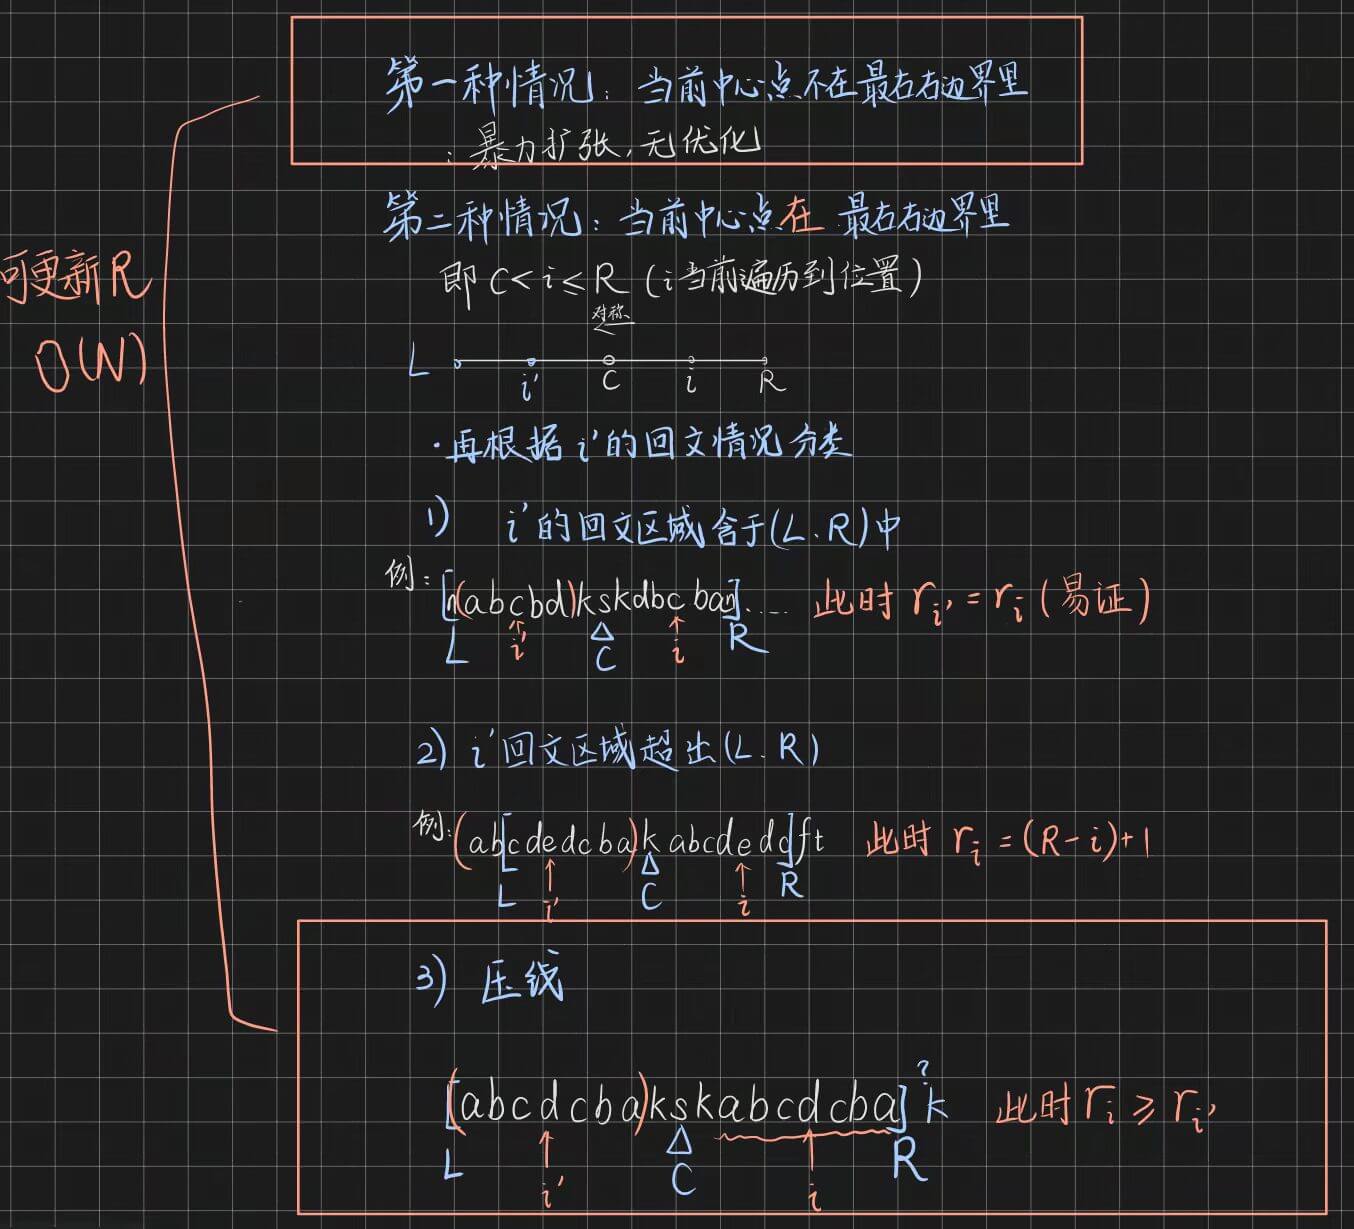 第一种情况：当前中心点不在最右右边界里
：暴力扩张，无优化
第二种情况：当前中心点在 最右右边界里
即 C<i≤R (i当前遍历到位置)
可更新R
O(N)
对称
L i' C i R
·再根据 i'的回文情况分类
1) i'的回文区域含于(L.R)中
例: [n(abcbd)kskdbcban].... 此时 ri' = ri (易证)
L i' C i R
2) i'回文区域超出(L.R)
例:(ab[cdedcba)kabcdedc]ft 此时 ri = (R-i)+1
L i' C i R
3) 压线
?
[(abcdcba)kskabcdcba]k 此时 ri ≥ ri'
L i' C i R